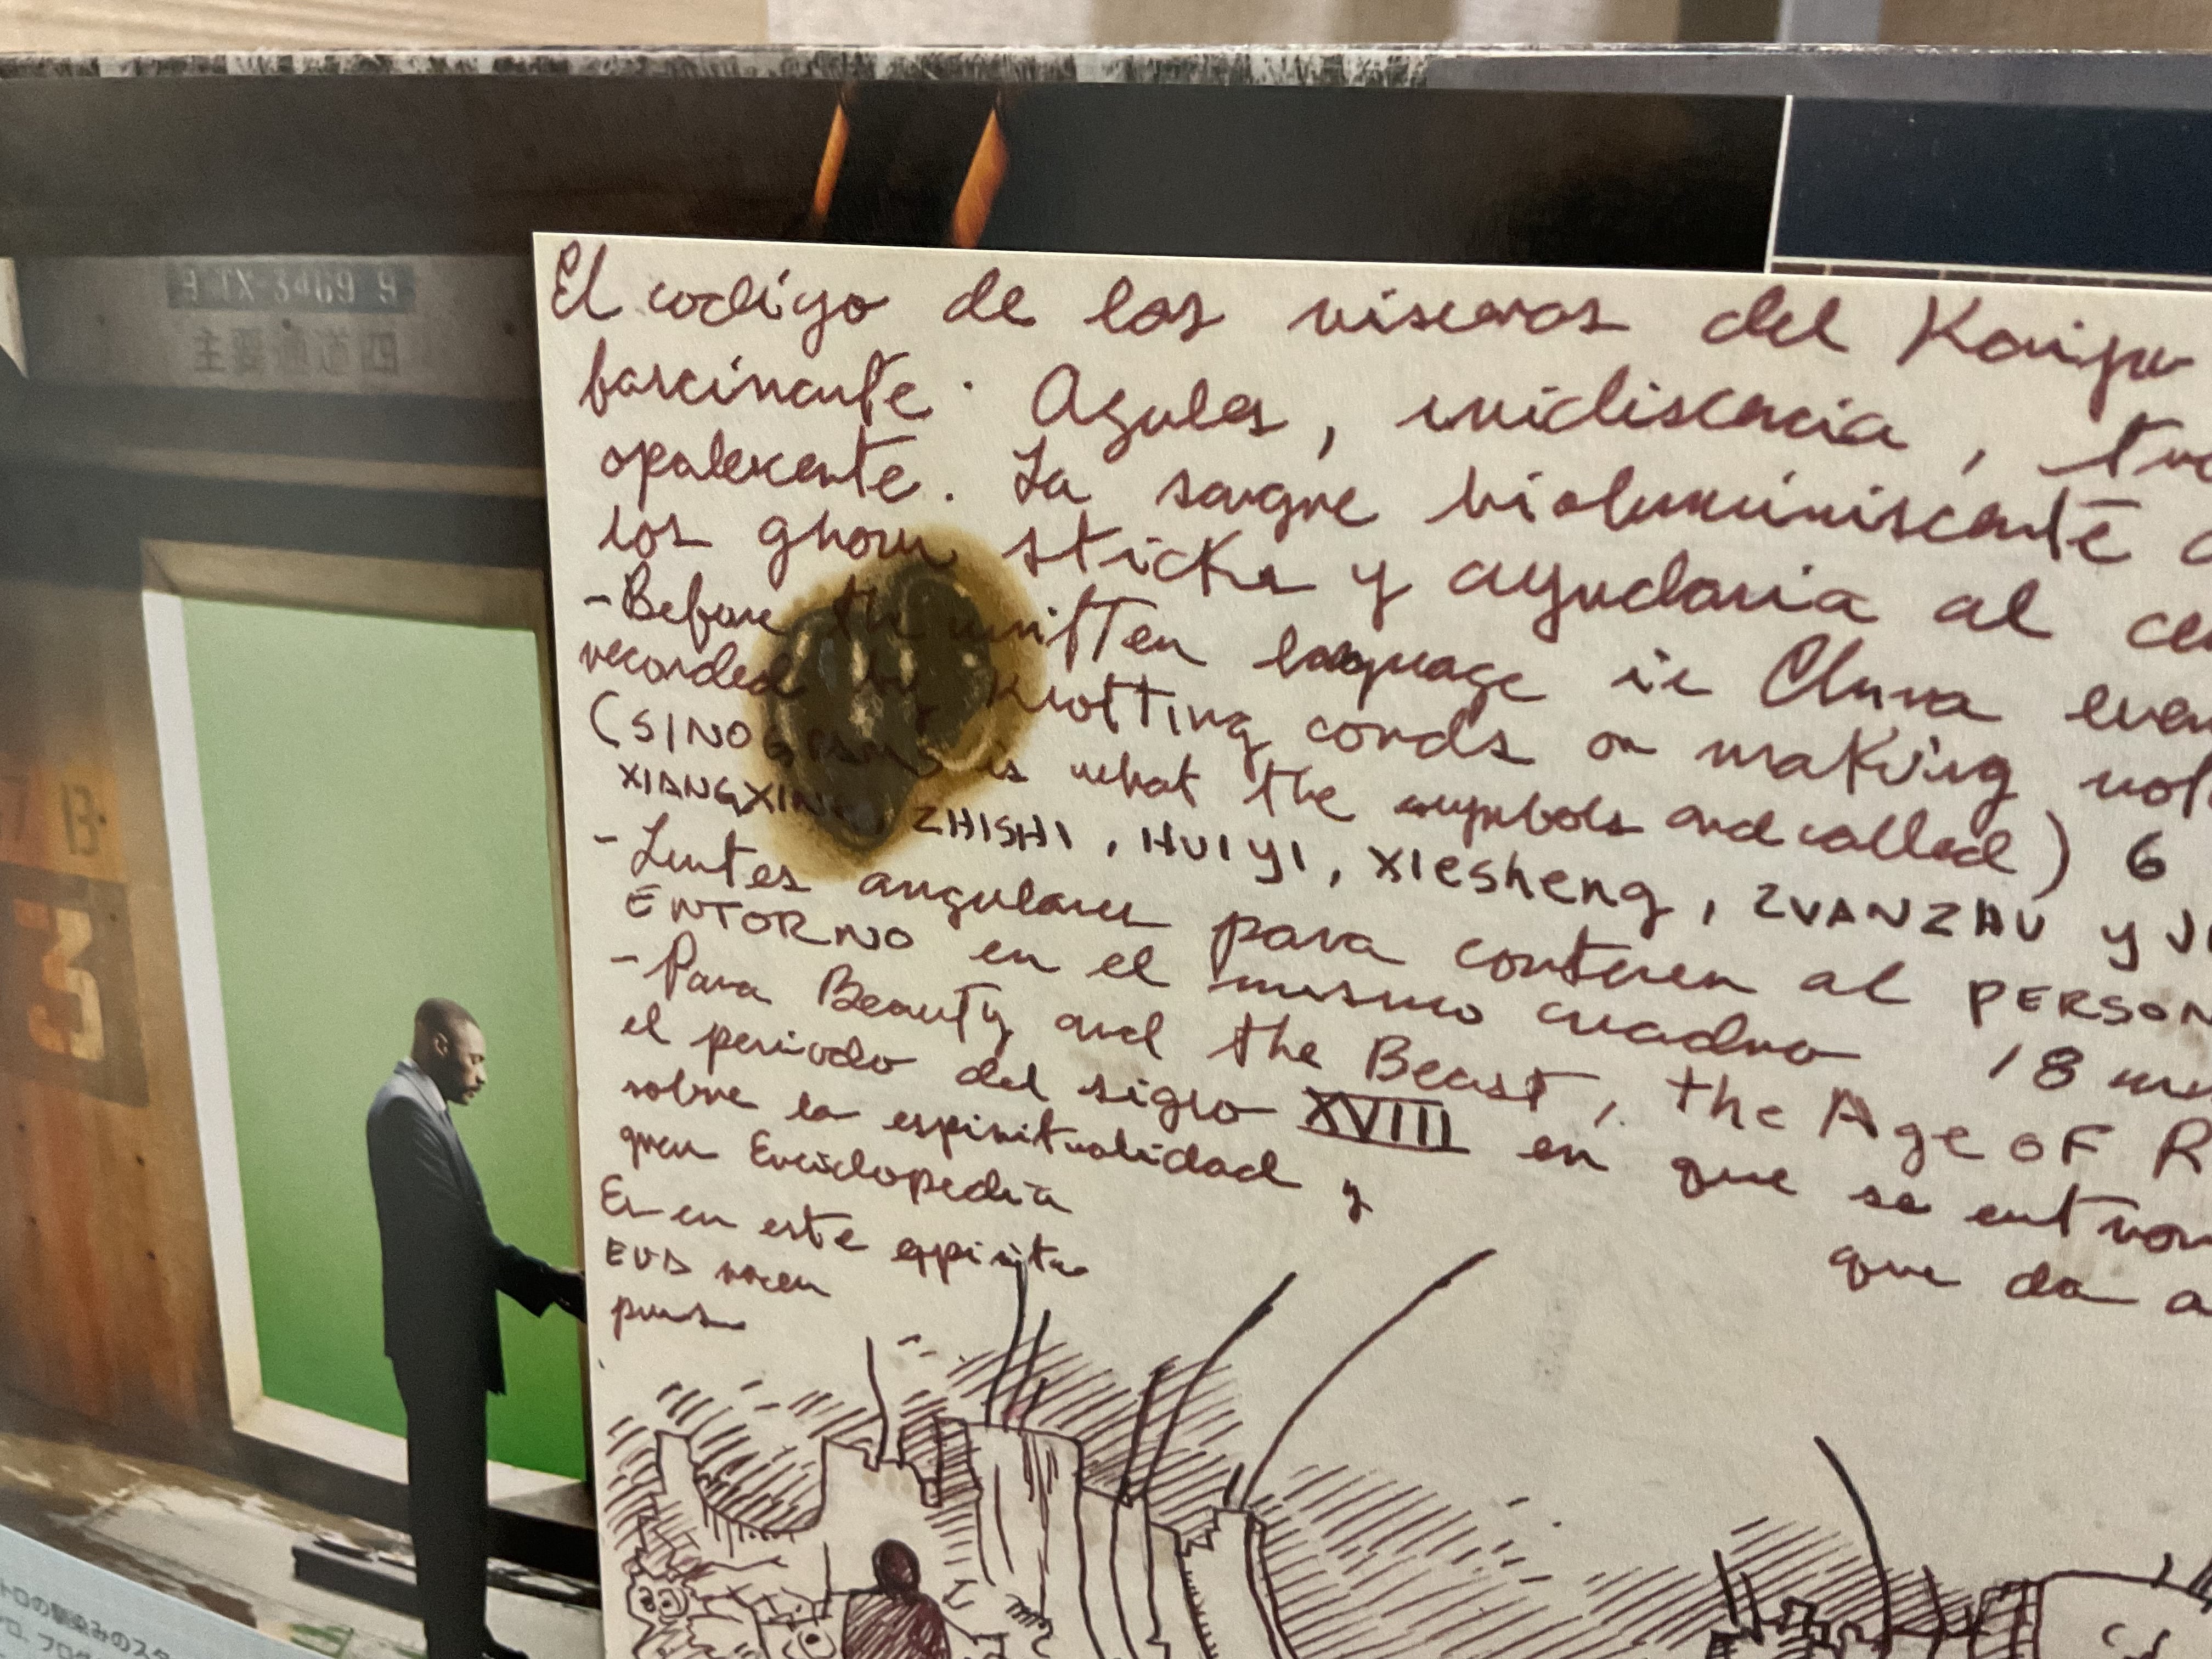 9 TX-3469 9
主要通道四
7 13
3
El codigo de las visceras del Kaiju
fascinante. Azules, iridiscencia,
opalescente. La sangre bioluminiscente
los ghom sticks y ayudaria al
-Before the written language in China even
recorded by knotting cords or making
(SINOGRAMS is what the symbols and called) 6
XIANGXING, ZHISHI, HUIYI, XIesheng, ZUANZHU y
-Lentes angulares para contener al PERSON
ENTORNO en el mismo cuadro 18
-Para Beauty and the Beast, the Age OF R
el periodo del siglo XVIII en que se
sobre la espiritualidad y que da a
gran Enciclopedia
Es en este espiritu
EVA
pues